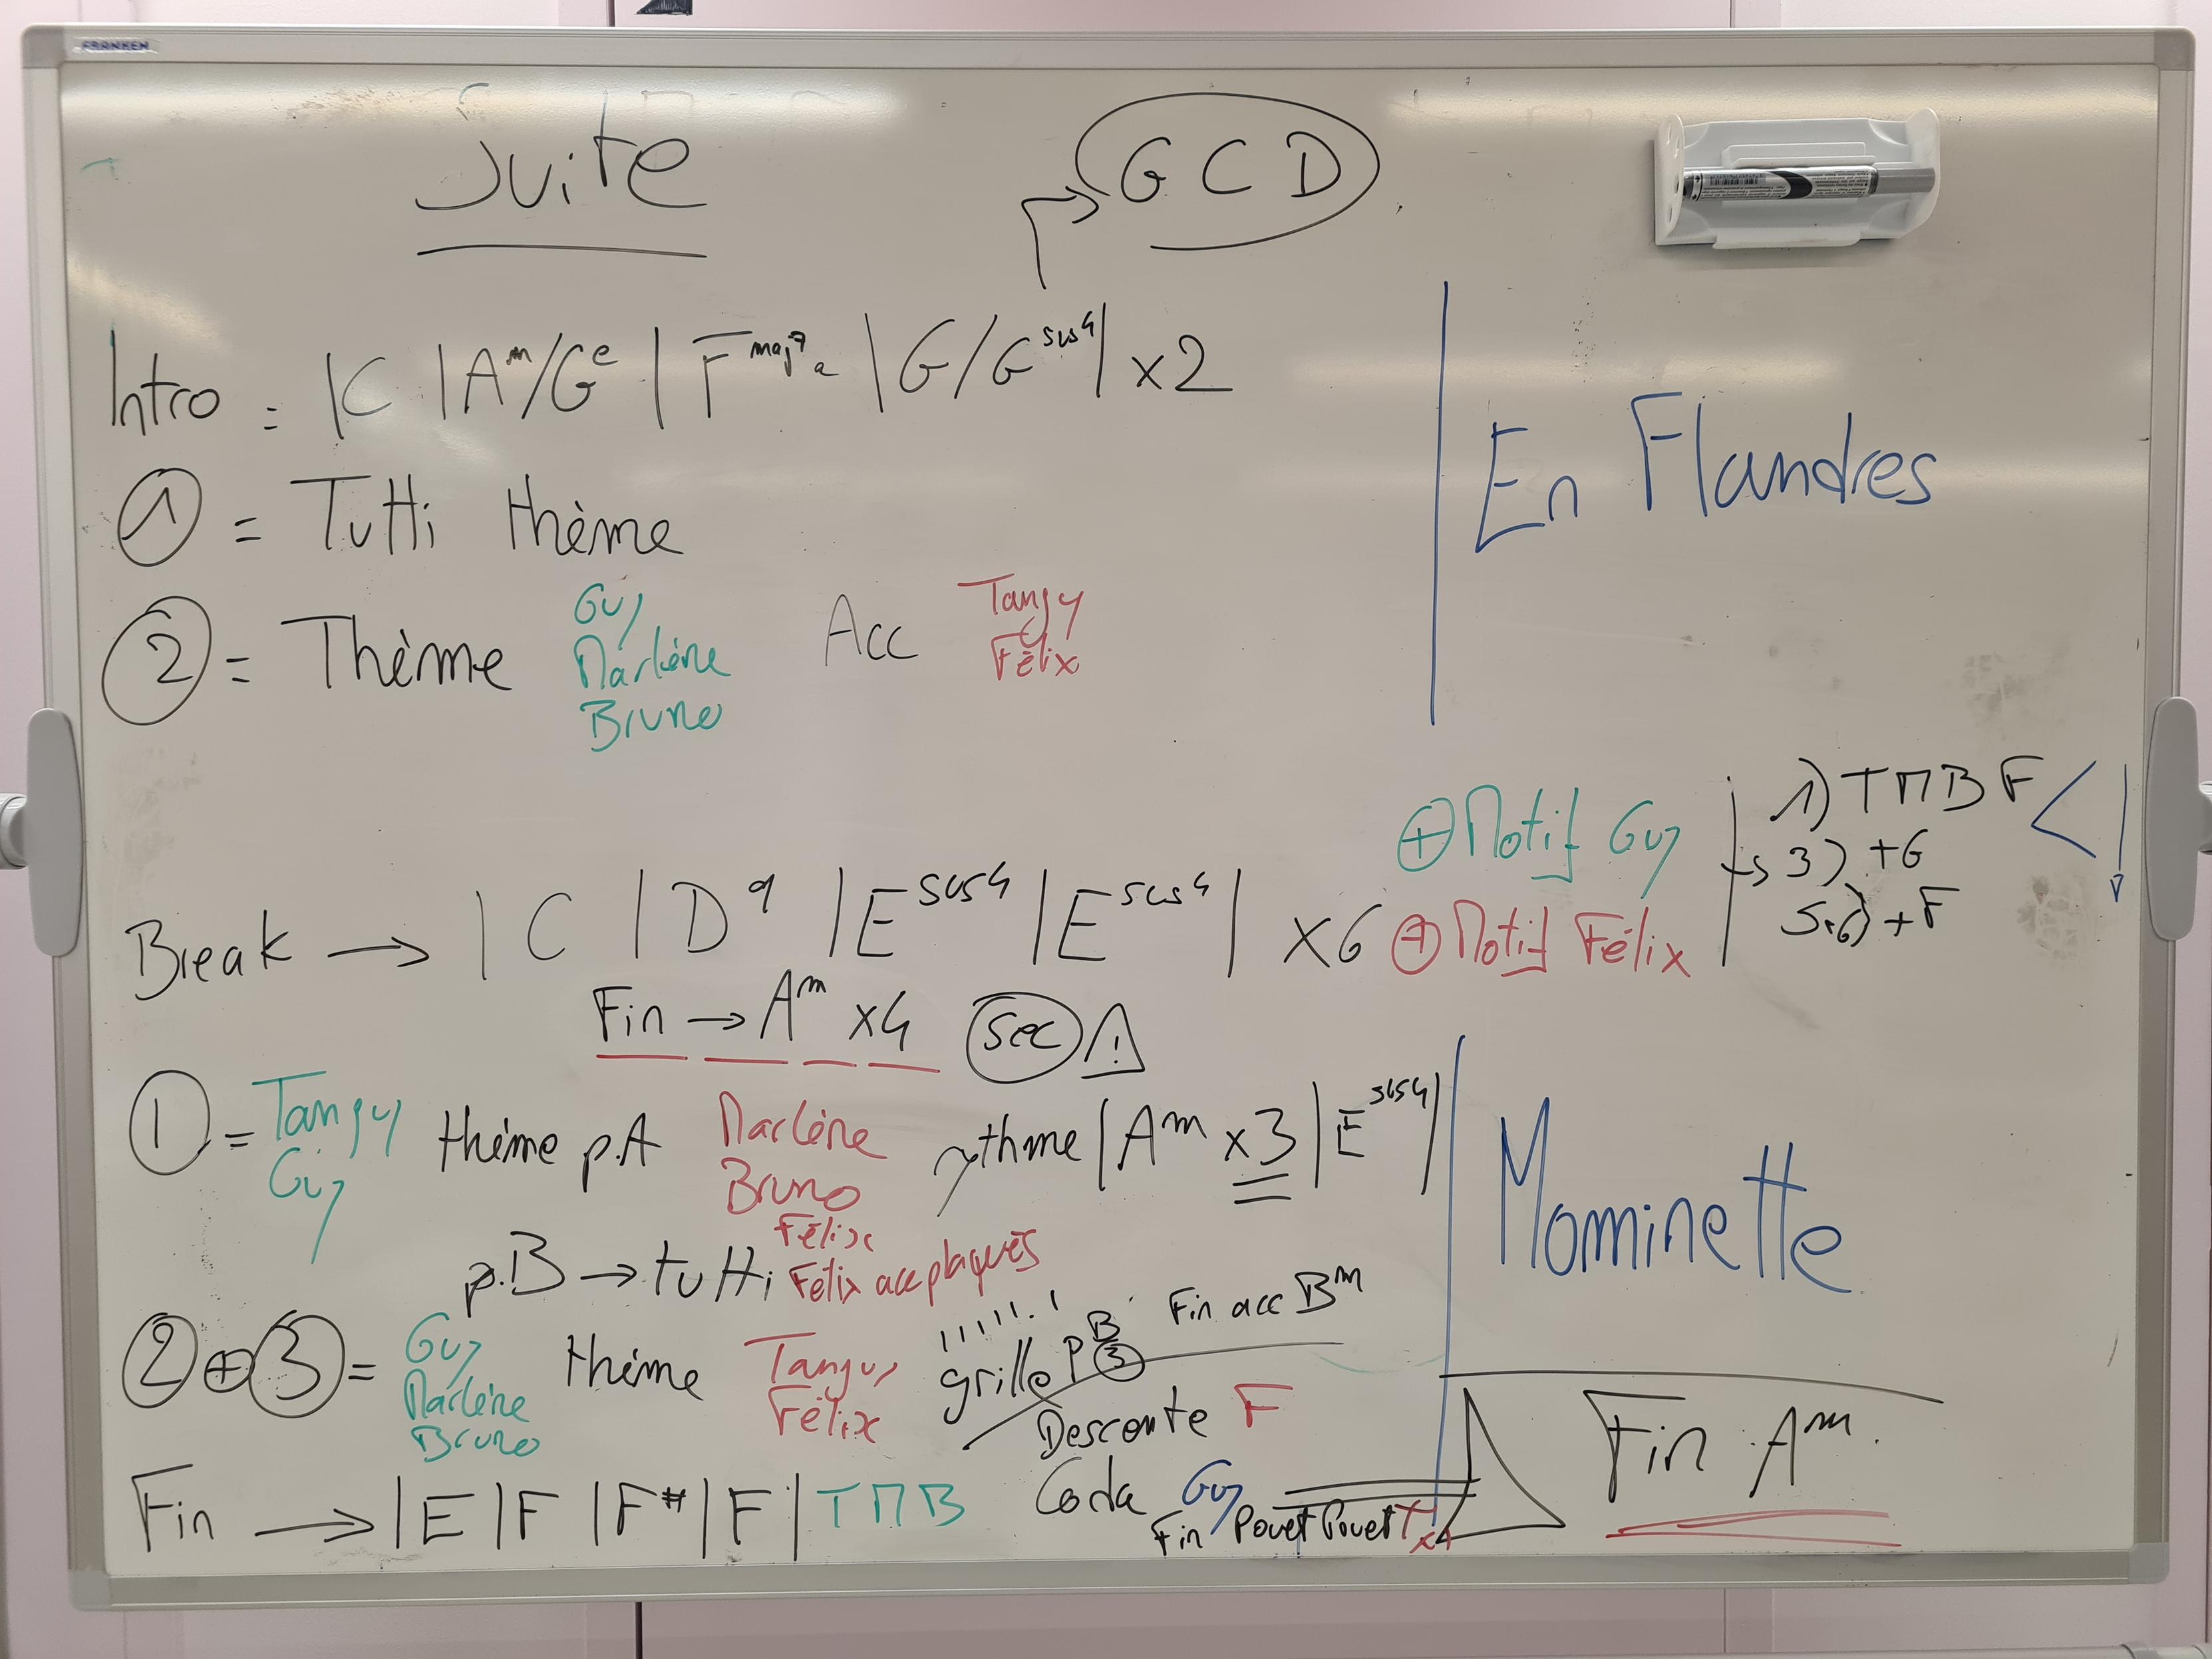 FRANKEN
Suite
G C D
Intro = |C |Am/Ge |Fmaj7a |G/Gsus4| x2
En Flandres
① = Tutti thème
② = Thème Guy Marlène Bruno Acc Tangy Félix
⊕ Motif Guy
⊕ Motif Félix
1) TMBF <
→ 3) +G
5(6) +F
Break → |C |D9 |Esus4 |Esus4| x6
Fin → Am x4 sec !
① = Tangy Guy thème p.A Marlène Bruno Félix rythme |Am x3|Esus4|
Mominette
p.B → tutti Félix acc plaqués
② ⊕ ③ = Guy Marlène Bruno thème Tanguy Félix grille p B ③ Fin acc Bm
Descente F
Fin → |E|F|F#|F| TMB
Coda Guy
Fin Pouet Pouet T x4
Fin Am.